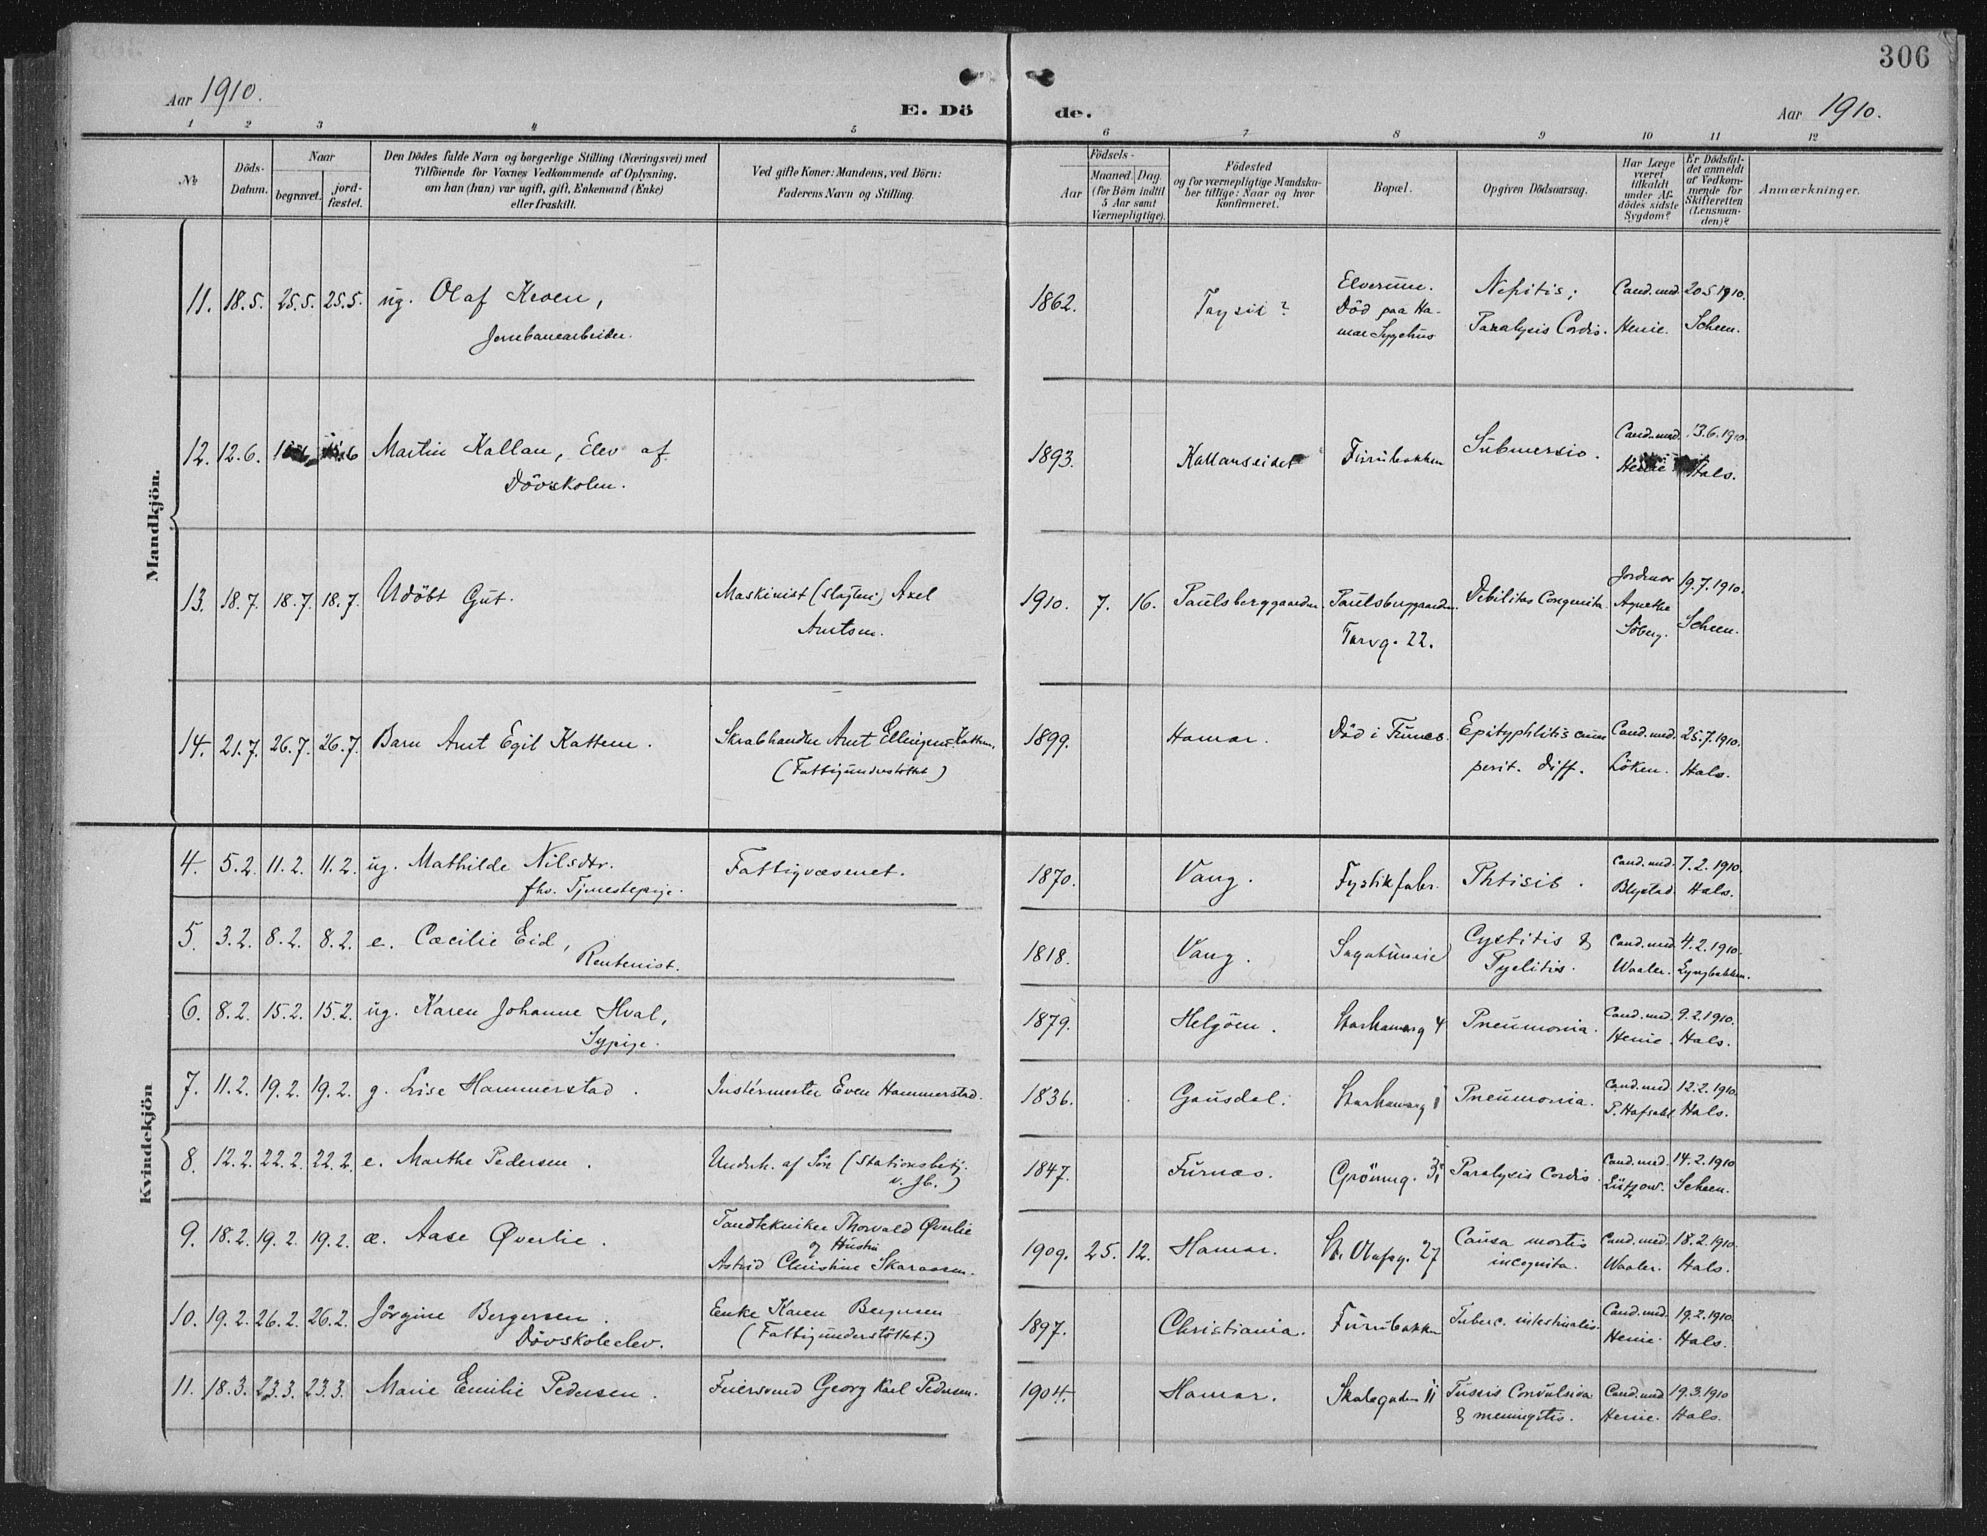 306
Aar 1910.
E. Dö de.
Aar 1910.
1 2 3 4 5 6 7 8 9 10 11 12
№
Döds-Datum.
Naar
begravet.
jord-fæstet.
Den Dödes fulde Navn og borgerlige Stilling (Næringsvei) med
Tilföiende for Voxnes Vedkommende af Oplysning,
om han (hun) var ugift, gift, Enkemand (Enke)
eller fraskilt.
Ved gifte Koner: Mandens, ved Börn:
Faderens Navn og Stilling.
Födsels-
Aar
Maaned. Dag.
(for Börn indtil
5 Aar samt
Værnepligtige).
Födested
og for værnepligtige Mandska-
ber tillige: Naar og hvor
konfirmeret.
Bopæl.
Opgiven Dödsaarsag.
Har Læge
været
tilkaldt
under Af-
dödes sidste
Sygdom?
Er Dödsfal-
det anmeldt
af Vedkom-
mende for
Skifteretten
(Lensman-
den)?
Anmærkninger.
Mandkjön.
11. 18.5. 25.5. 25.5. ug. Olaf Kvoen, 1862. Trysil? Elverum. Nefritis; Cand. med. 20.5.1910.
Jernbanearbeider. Död paa Ha-mar Sygehus Paralysis Cordis. Henie. Scheen.
12. 12.6. Martin Kallan, Elev af 1893. Kallanseidet Furubakken Submersio. Cand. med. 13.6.1910.
Dövskolen. Henie Hals.
13. 18.7. 18.7. 18.7. Udöbt Gut. Maskinist Axel 1910. 7. 16. Paulsberggaarden. Paulsberggaarden. Debilitas Congenita. Jordmor 19.7.1910.
Arntsen. Torvg. 22. Agnethe Söberg. Scheen.
14. 21.7. 26.7. 26.7. Barn Arnt Egil Kattem. Skrabhandler Arnt Ellingsen Kattem. 1899. Hamar. Död i Furnes. Epityphlitis cum Cand. med. 25.7.1910.
(Fattigunderstöttet) perit. diff. Löken. Hals.
Kvindekjön
4. 5.2. 11.2. 11.2. ug. Mathilde Nilsdtr. Fattigvæsenet. 1870. Vang. Fystikfabr. Phtisis. Cand. med. 7.2.1910.
fhv. Tjenestepige. Blystad Hals.
5. 3.2. 8.2. 8.2. e. Cæcilie Eid, 1818. Vang. Sagatunvei Cystitis & Cand. med. 4.2.1910.
Rentenist. Pyelitis. Waaler. Lyngbakken.
6. 8.2. 15.2. 15.2. ug. Karen Johanne Hval, 1879. Helgöen. Storhamarg 4 Pneumonia. Cand. med. 9.2.1910.
Sypige. Henie. Hals.
7. 11.2. 19.2. 19.2. g. Lise Hammerstad. Instermester Even Hammerstad. 1836. Gausdal. Storhamarg 1 Pneumonia. Cand. med. 12.2.1910.
P. Hafsahl Hals.
8. 12.2. 22.2. 22.2. e. Marthe Pedersen. Underh. af Sön (Stationsbetj. 1847. Furnæs. Grönneg. Paralysis Cordis. Cand. med. 14.2.1910
v. Jb.) Lützow. Scheen.
9. 18.2. 19.2. 19.2. æ. Aase Øverlie. Tandtekniker Thorvald Øverlie 1909. 25. 12. Hamar. St. Olafsg. 27 Causa mortis Cand. med. 18.2.1910.
og Hustru
Astrid Christine Skaraasen. incognita. Waaler. Hals.
10. 19.2. 26.2. 26.2. Jörgine Bergersen. Enke Karen Bergersen 1897. Christiania. Furubakken Tuberc. intestinalis. Cand. med. 19.2.1910.
Dövskoleelev. (Fattigunderstöttet.) Henie. Hals.
11. 18.3. 23.3. 23.3. Marie Emilie Pedersen. Feiersvend Georg Karl Pedersen. 1904. Hamar. Skolegaden 11 Tussis Convulsiva Cand. med 19.3.1910
& meningitis. Henie. Hals.